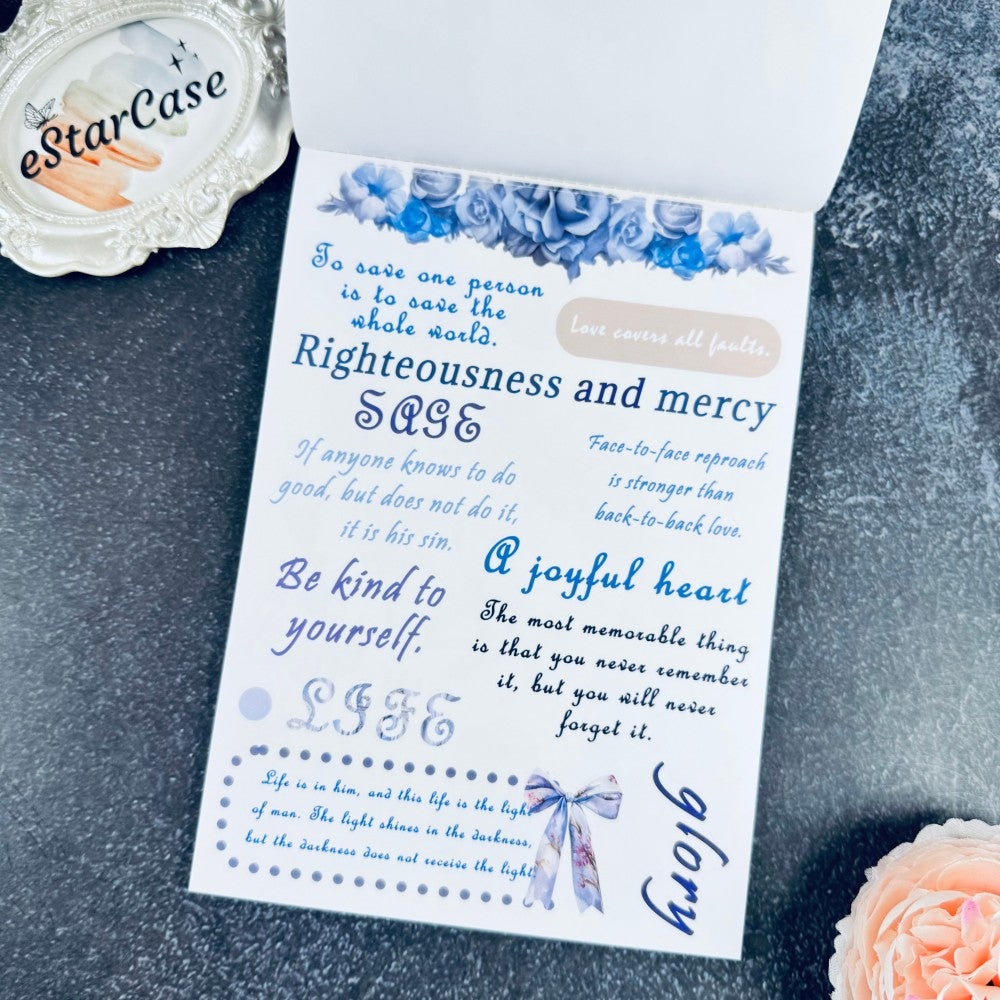 eStarCase
To save one person
is to save the
whole world.
Love covers all faults.
Righteousness and mercy
SAGE
If anyone knows to do
good, but does not do it,
it is his sin.
Face-to-face reproach
is stronger than
back-to-back love.
Be kind to
yourself.
A joyful heart
The most memorable thing
is that you never remember
it, but you will never
forget it.
LIFE
Life is in him, and this life is the light
of man. The light shines in the darkness,
but the darkness does not receive the light.
glory